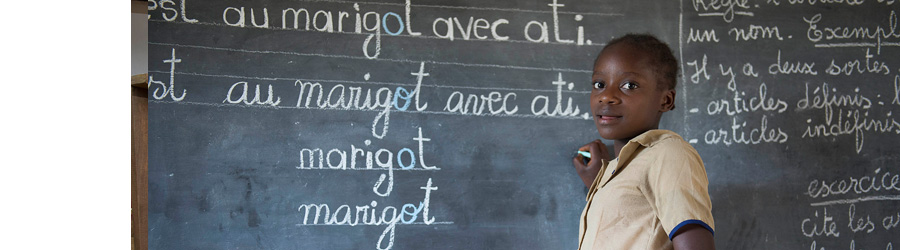 est au marigot avec ati.
est au marigot avec ati.
marigot
marigot
Règle: l'
un nom. Exemple
Il y a deux sortes
- articles définis: l
- articles indéfinis
exercice
cite les a